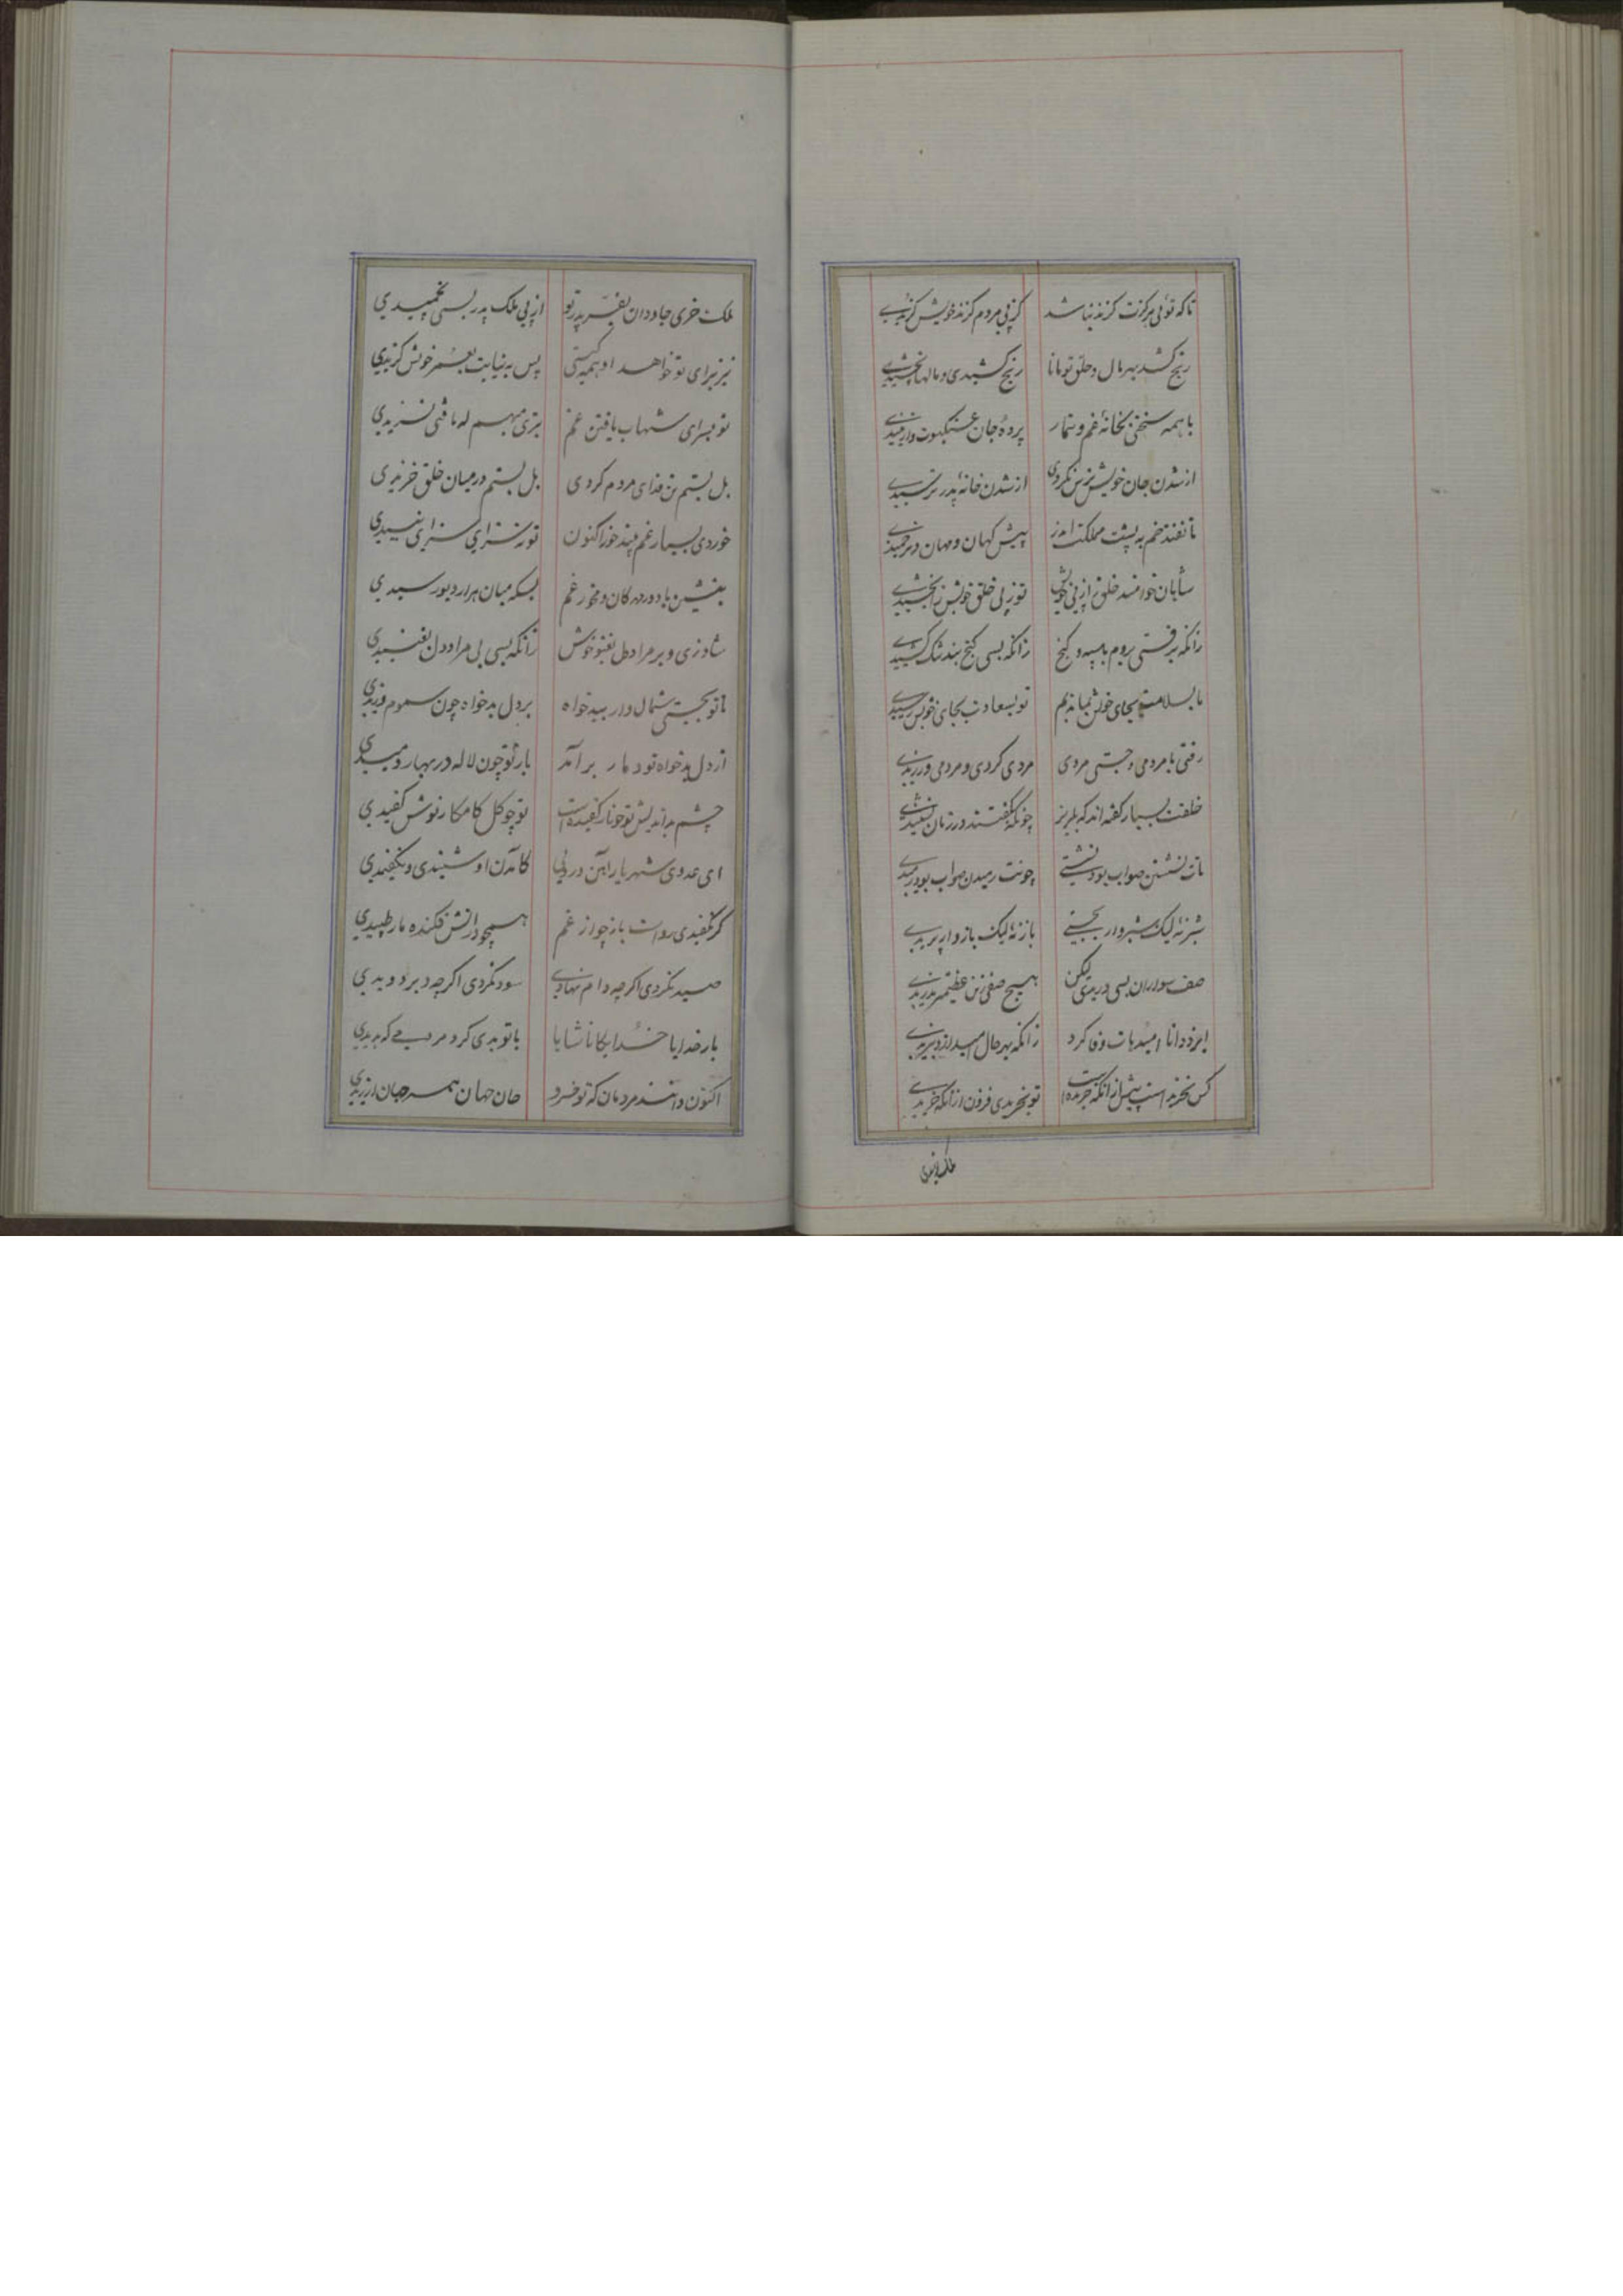 تا که توئی هرگزت گزند نباشد کز پی مردم گزند خویش گزیدی
رنج کشد بهر مال و خلق تو مانا رنج کشیدی و مالها بخشیدی
با همه سختی بخانهٔ غم و تیمار پردهٔ جان عنکبوت وار تنیدی
از شدن جان خویش ترس نکردی از شدن خانهٔ پدر ترسیدی
تا نفتد خم به پشت مملکت اندر پیش کهان و مهان دهر خمیدی
شاهان خواهند خلق از پی خویش تو ز پی خلق خویش را بخشیدی
زانکه برفتی بروم با سپه و گنج زانکه بسی گنج بند تنگ کشیدی
ما بسلامت بجای خویش بماندیم تو بسعادت بجای خویش رسیدی
رفتی با مردمی و جستی مردی مردی کردی و مردمی ورزیدی
خلقت بسیار گفته اند که بگریز چونکه بگفتند در زمان نشنیدی
تات نشستن صواب بود نشستی چونت رمیدن صواب بود رمیدی
شیر نهٔ لیک شیروار بجستی باز نهٔ لیک بازوار پریدی
صف سواران بسی دریدی لیکن هیچ صفی زین عظیمتر ندریدی
ایزد دانا امیدهات وفا کرد زانکه بهر حال امید ازو نبریدی
کس نخرید است پیش از آنکه خریده است تو بخریدی فزون از آنکه خریدی
ملک خریدی
ملک خری جاودان بفر پدر تو از پی ملک پدر بسی بخمیدی
نیز برای تو خواهد او همه گیتی پس به نیابت بعمر خوش گزیدی
تو بسرای شهاب یافتن غم
بل بستم تن فدای مردم کردی بل بستم در میان خلق خزیدی
خوردی بسیار غم پند خور اکنون تو نه سزای سزای نبیدی
بنشین با دوردکان و مخور غم بسکه میان هزار دیو رسیدی
شاد زی و بر مراد دل بغنو خوش زانکه بسی بی مراد دل نغنیدی
تا تو بجستی شمال وار بیدخواه بر دل بدخواه چون سموم وزیدی
از دل بدخواه تو دمار برآمد باز تو چون لاله در بهار دمیدی
چشم بداندیش تو چو نار کفیده است تو چو گل کامکار نوش کفیدی
ای عدوی شهریار آهن و روئی کامدن او شنیدی و نکفیدی
گر نکفیدی رواست باز چو از غم همچو در آتش فکنده مار طپیدی
صید نکردی اگر چه دام نهادی سود نکردی اگر چه دیر دویدی
بار خدایا خدایگانا شاها با تو بدی کرد مردمی که بدیدی
اکنون دانند مردمان که تو خسرو جان جهان همسر جهان ارزیدی